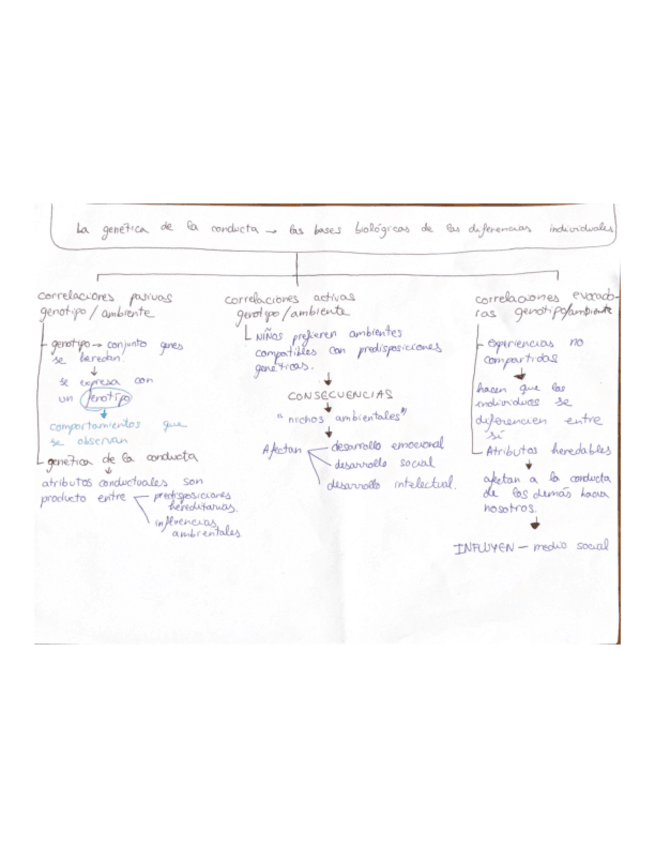 La genética de la conducta → las bases biológicas de las diferencias individuales
correlaciones pasivas
genotipo/ambiente
genotipo → conjunto genes
se heredan
↓
se expresa con
un fenotipo
↓
comportamientos que
se observan
genética de la conducta
↓
atributos conductuales son
producto entre
predisposiciones
hereditarias.
influencias
ambientales
correlaciones activas
genotipo/ambiente
NIÑOS prefieren ambientes
compatibles con predisposiciones
genéticas.
↓
CONSECUENCIAS
↓
"nichos ambientales"
↓
Afectan
desarrollo emocional
desarrollo social
desarrollo intelectual.
correlaciones evocado-
ras genotipo/ambiente
experiencias no
compartidas
↓
hacen que los
individuos se
diferencien entre
sí
Atributos heredables
↓
afectan a la conducta
de los demás hacia
nosotros.
↓
INFLUYEN – medio social